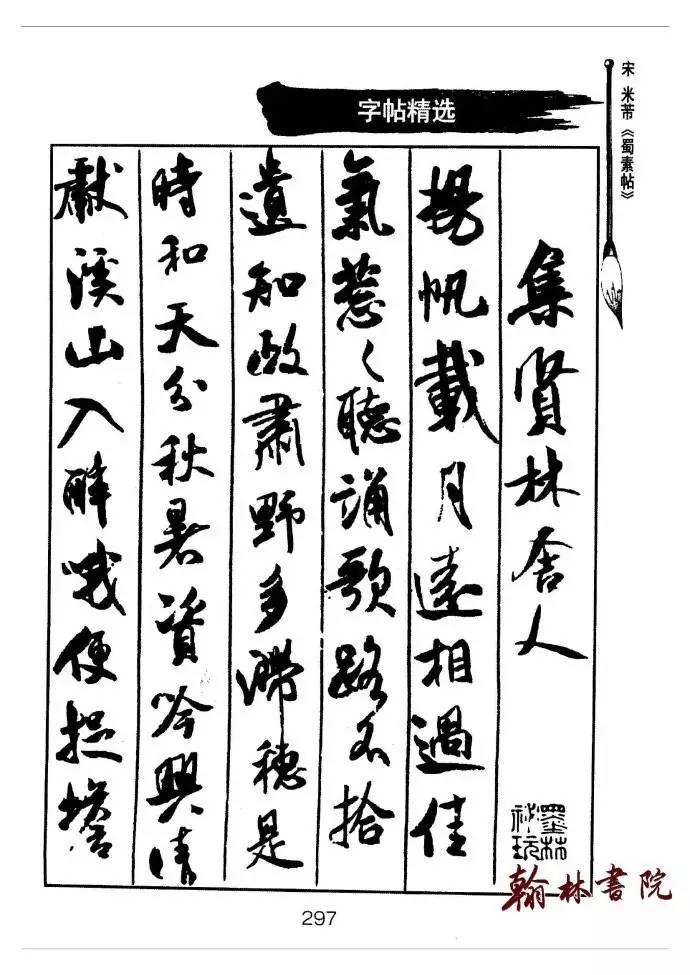 宋 米芾《蜀素帖》
字帖精选
集賢林舍人
揚帆載月遠相過佳
氣葱々聽誦歌路不拾
遺知政肅野多滯穗是
時和天分秋暑資吟興晴
獻溪山入醉哦便捉蟾
墨林祕玩
翰林書院
297